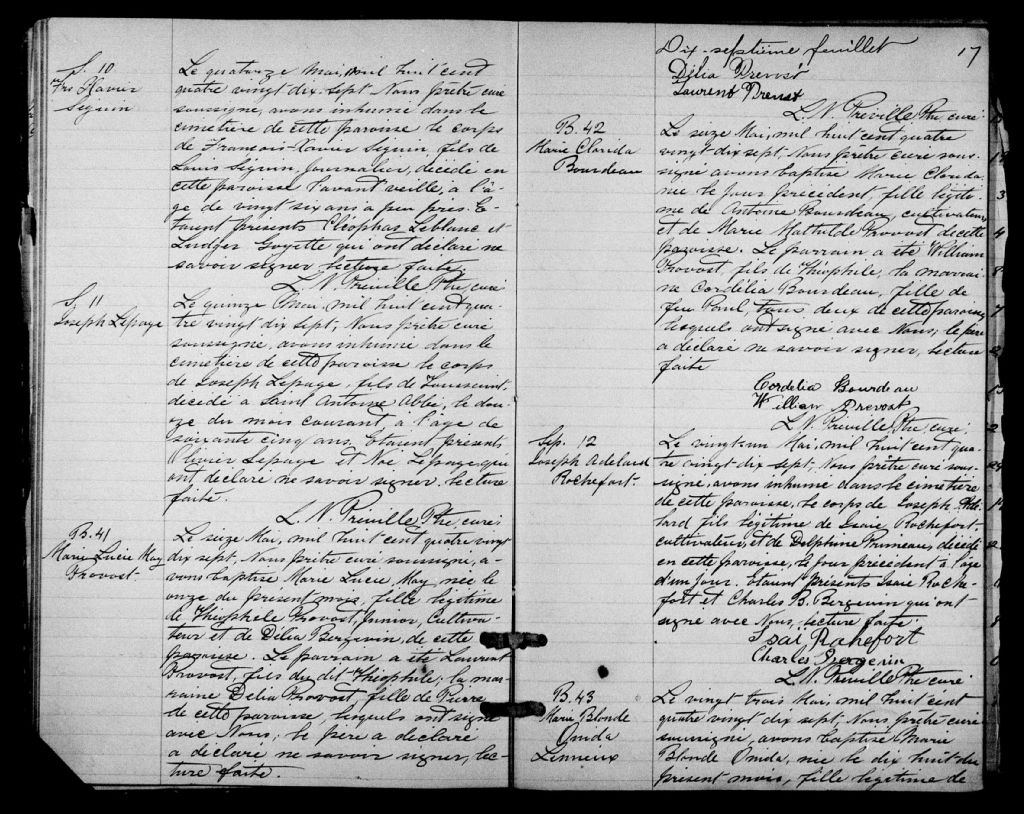 S. 10
Frs Xavier
Seguin
Le quatorze Mai, mil huit cent
quatre vingt dix sept, Nous prêtre curé
soussigné, avons inhumé dans le
cimetière de cette paroisse le corps
de François-Xavier Séguin, fils de
Louis Séguin, journalier, décédé en
cette paroisse l'avant veille, à l'â-
ge de vingt six ans à peu près. E-
taient présents Cléophas Leblanc et
Ludger Goyette qui ont déclaré ne
savoir signer, lecture faite.
L. N. Préville Ptre, curé.
S. 11
Joseph Lepage
Le quinze Mai, mil huit cent qua-
tre vingt dix sept, Nous prêtre curé
soussigné, avons inhumé dans le
cimetière de cette paroisse le corps
de Joseph Lepage, fils de Toussaint,
décédé à Saint Antoine Abbé, le dou-
ze du mois courant à l'âge de
soixante cinq ans. Etaient présents
Olivier Lepage et Noé Lepage qui
ont déclaré ne savoir signer, lecture
faite.
L. N. Préville Ptre, curé.
B. 41
Marie Lucie May
Provost.
Le seize Mai, mil huit cent quatre vingt
dix sept, Nous prêtre curé soussigné, a-
vons baptisé Marie Lucie May, née le
onze du présent mois, fille légitime
de Théophile Provost, junior, Cultiva-
teur et de Délia Bergevin, de cette
paroisse. Le parrain a été Laurent
Provost, fils du dit Théophile; la mar-
raine Délia Provost fille de Pierre
de cette paroisse, lesquels ont signé
avec Nous; le père a déclaré
a déclaré ne savoir signer, lec-
ture faite.
Dix-septième feuillet
17
Délia Prevost
Laurent Prevost
L. N. Préville Ptre, curé.
B. 42
Marie Clorida
Bourdeau
Le seize Mai, mil huit cent quatre
vingt dix sept, Nous prêtre curé sous-
signé avons baptisé Marie Clorida
née le jour précédent, fille légiti-
me de Antoine Bourdeau, cultivateur,
et de Marie Mathilde Provost de cette
paroisse. Le parrain a été William
Provost, fils de Théophile, la marrai-
ne Cordélia Bourdeau, fille de
feu Paul, tous deux de cette paroisse,
lesquels ont signé avec Nous; le père
a déclaré ne savoir signer, lecture
faite
Cordelia Bourdeau
Willien Prevost
L. N. Préville Ptre, curé.
Sep. 12
Joseph Adelard
Rochefort.
Le vingt-un Mai, mil huit cent qua-
tre vingt dix sept, Nous prêtre curé sous-
signé, avons inhumé dans le cimetière
de cette paroisse, le corps de Joseph Adé-
lard fils légitime de Isaïe Rochefort,
cultivateur, et de Delphine Primeau, décédé
en cette paroisse, le jour précédent à l'âge
d'un jour. Etaient présents Isaïe Roche-
fort et Charles B. Bergevin qui ont
signé avec Nous, lecture faite.
Isaï Rahefort
Charles Bergevin
L. N. Préville Ptre curé
B. 43
Marie Blonde
Onida
Lemieux
Le vingt trois Mai, mil huit cent
quatre vingt dix sept, Nous, prêtre curé
soussigné, avons baptisé Marie
Blonde Onida, née le dix huit du
présent mois, fille légitime de